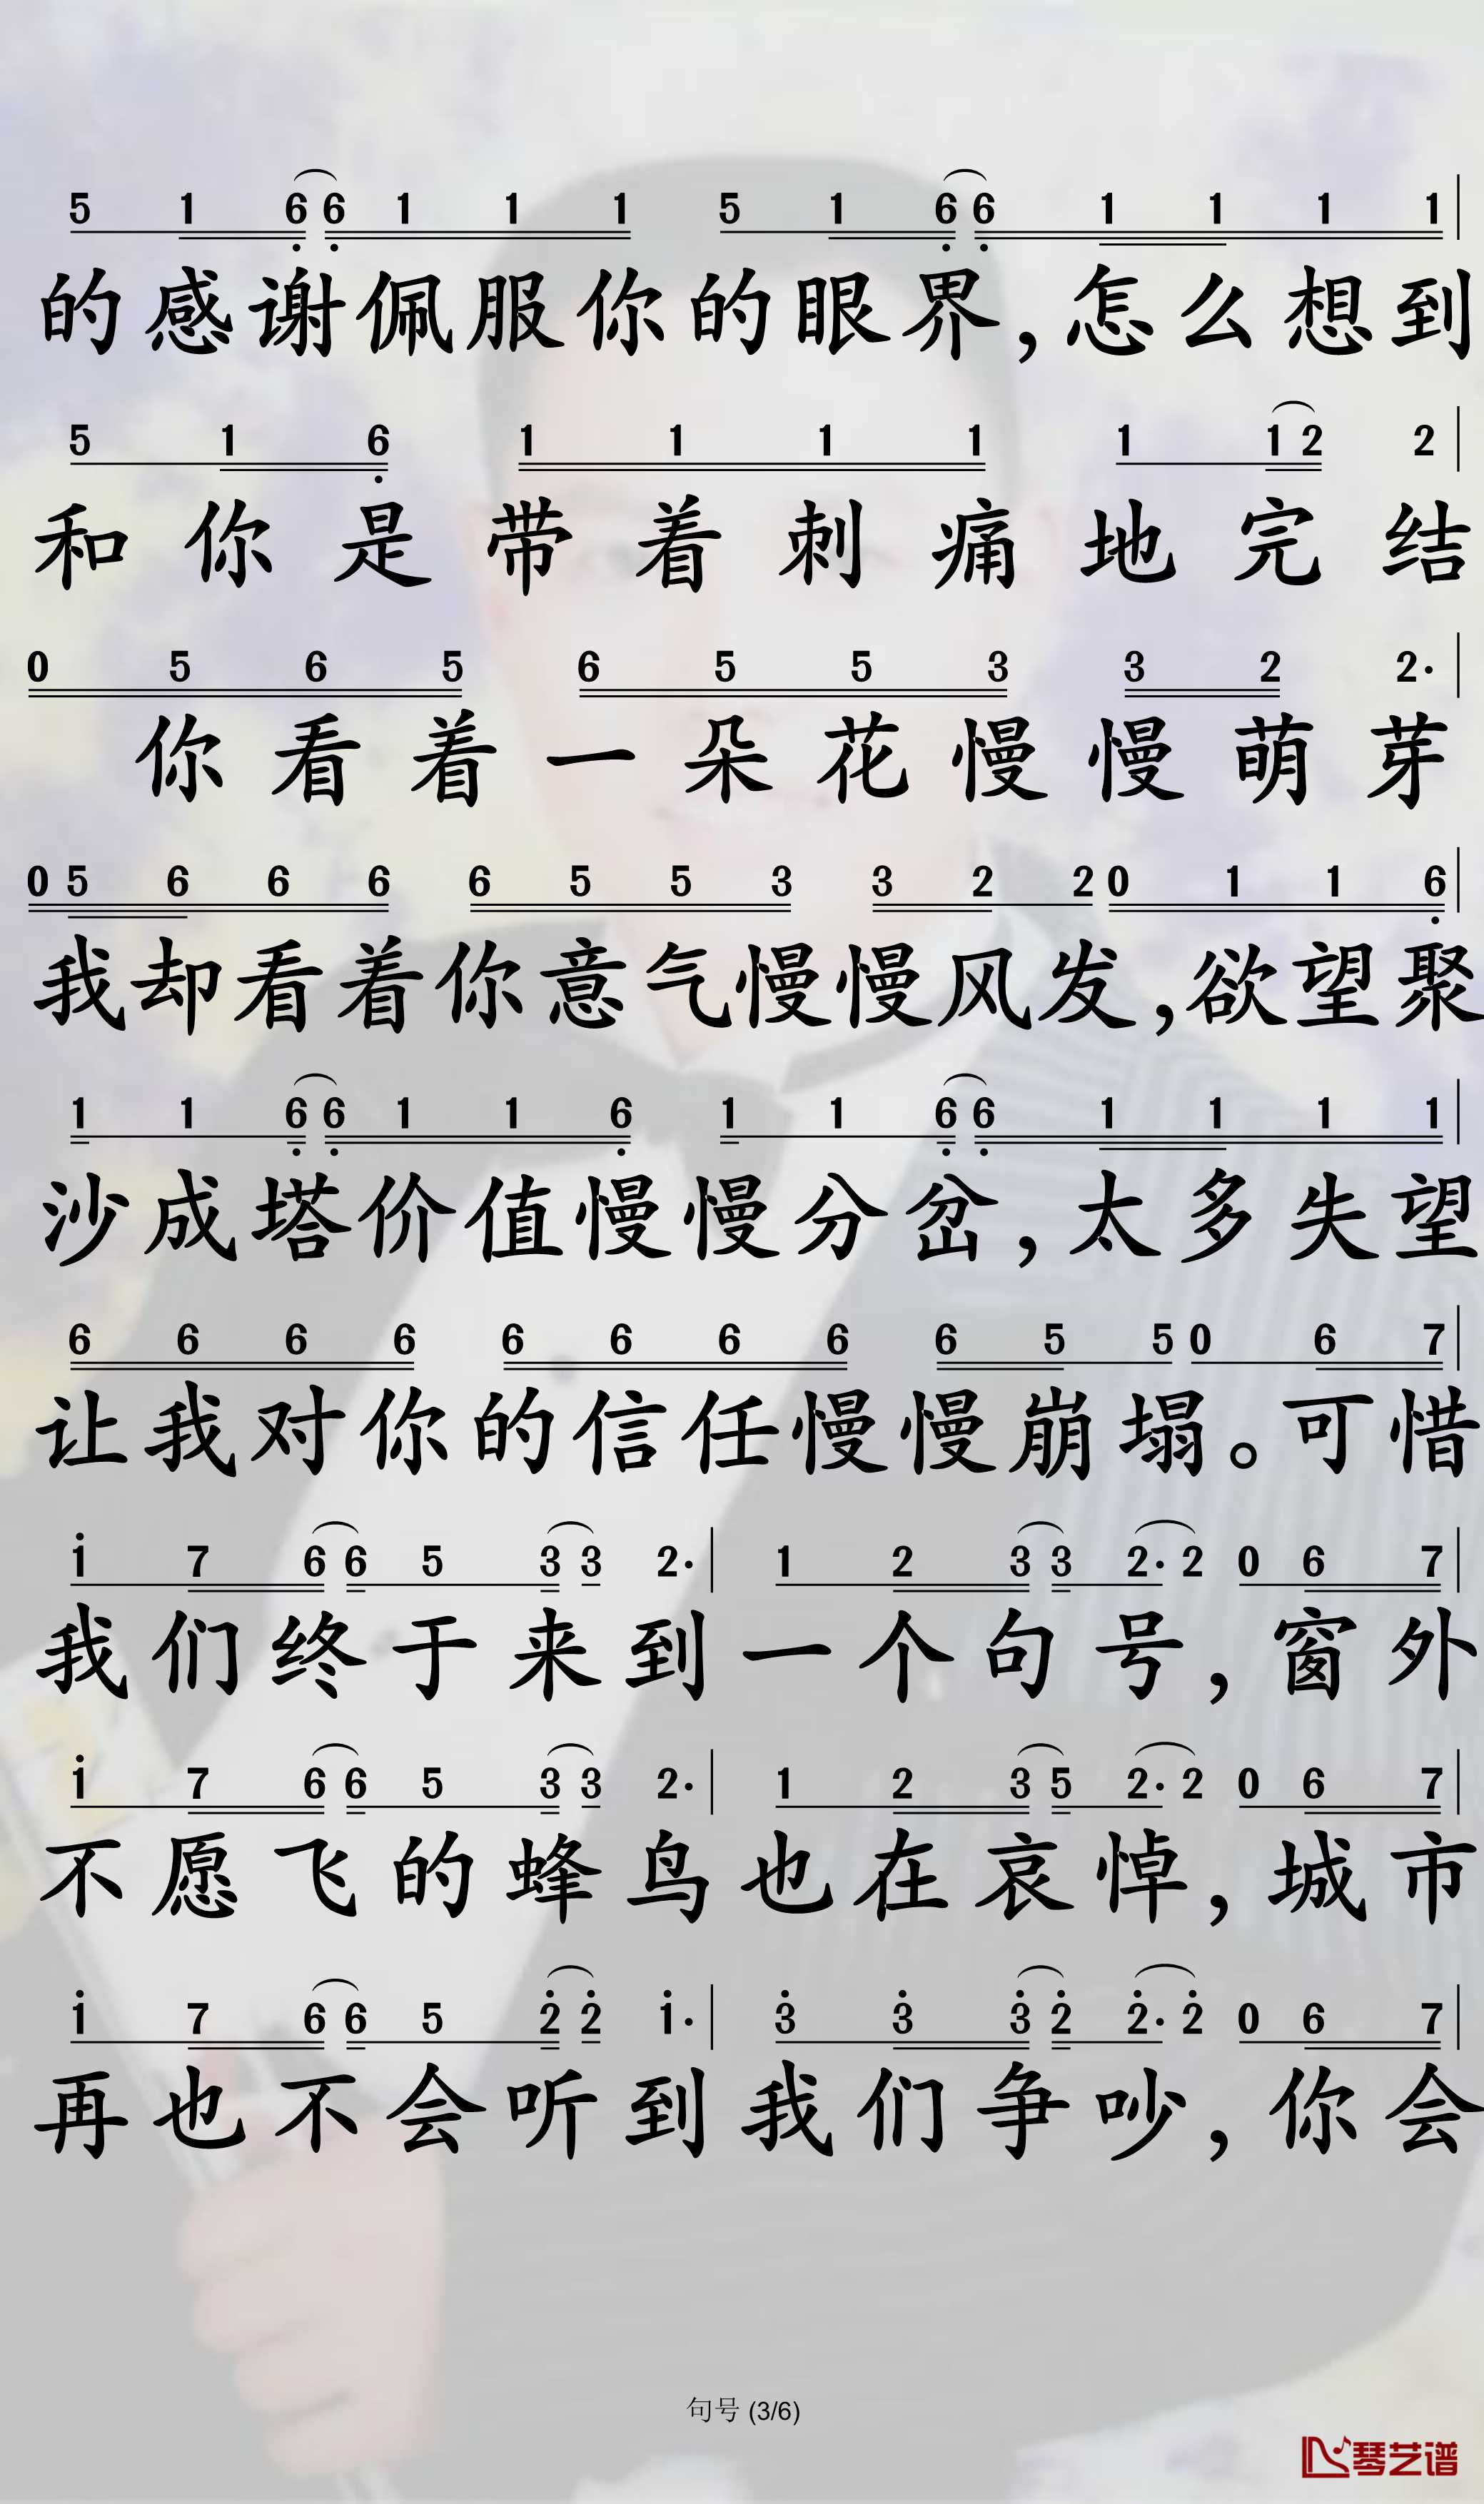 5 1 6 6 1 1 1 5 1 6 6 1 1 1 1
的感谢佩服你的眼界,怎么想到
5 1 6 1 1 1 1 1 1 2 2
和你是带着刺痛地完结
0 5 6 5 6 5 5 3 3 2 2·
你看着一朵花慢慢萌芽
0 5 6 6 6 6 5 5 3 3 2 2 0 1 1 6
我却看着你意气慢慢风发,欲望聚
1 1 6 6 1 1 6 1 1 6 6 1 1 1 1
沙成塔价值慢慢分岔,太多失望
6 6 6 6 6 6 6 6 6 5 5 0 6 7
让我对你的信任慢慢崩塌。可惜
1 7 6 6 5 3 3 2· 1 2 3 3 2· 2 0 6 7
我们终于来到一个句号,窗外
1 7 6 6 5 3 3 2· 1 2 3 5 2· 2 0 6 7
不愿飞的蜂鸟也在哀悼,城市
1 7 6 6 5 2 2 1· 3 3 3 2 2· 2 0 6 7
再也不会听到我们争吵,你会
句号 (3/6)
琴艺谱